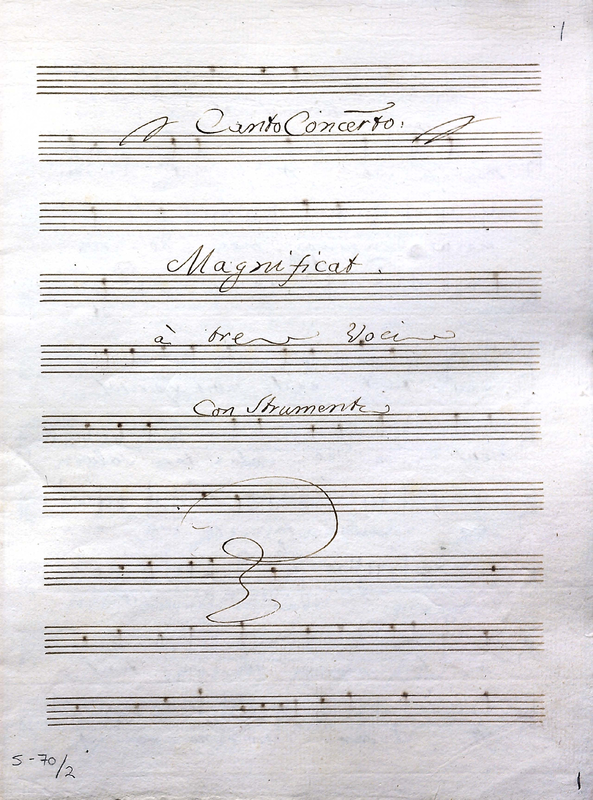 1
Canto Concerto.
Magnificat.
à tre Voci
Con Strumenti
S-70/2
1